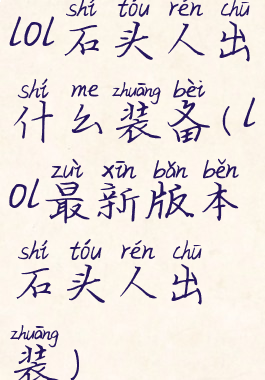 shí tóu rén chū
lol石头人出
shí me zhuāng bèi
什么装备(l
zuì xīn bǎn běn
ol最新版本
shí tóu rén chū
石头人出
zhuāng
装)